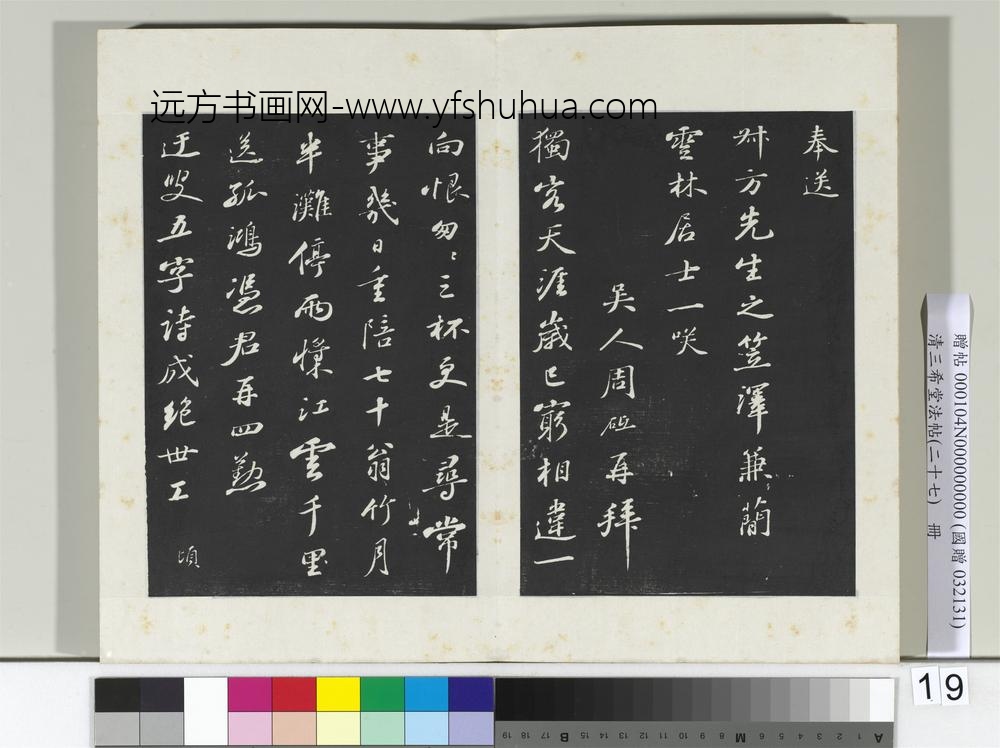 远方书画网-www.yfshuhua.com
奉送
叔方先生之笠澤兼簡
雲林居士一咲
吴人周砥再拜
獨客天涯歲已窮相違一
向恨匆〻三杯更是尋常
事幾日重陪七十翁竹月
半灘停雨懞江雲千里
送孤鴻憑君再四勲
迂叟五字詩成絶世工
頃
贈帖 000104N000000000 (國贈 032131)
清三希堂法帖(二十七) 冊
19
A 1 2 3 4 5 6 M 8 9 10 11 12 13 14 15 B 17 18 19